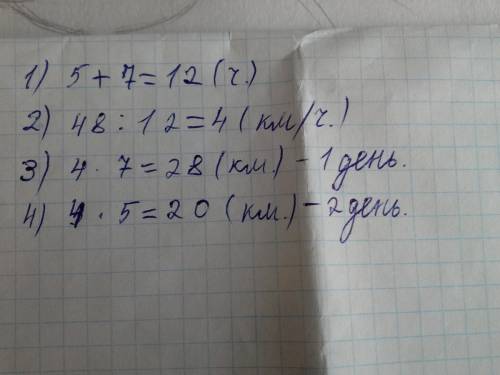 1) 5 + 7 = 12 (ч.)
2) 48 : 12 = 4 (км/ч.)
3) 4 · 7 = 28 (км.) - 1 день.
4) 4 · 5 = 20 (км.) - 2 день.